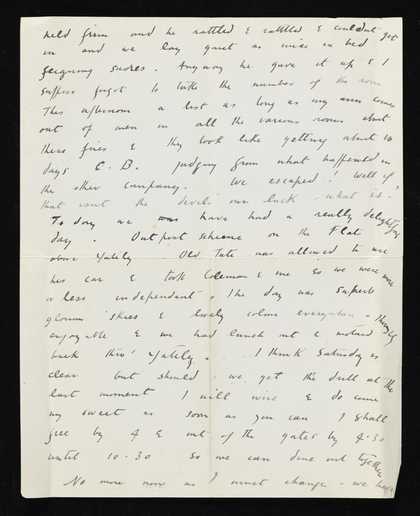 held firm and he rattled & rattled & couldn't get
in and we lay quiet as mice in bed
feigning snores. Anyway he gave it up & I
suppose forgot to take the number of the room
This afternoon a list as long as my arm comes
out of men in all the various rooms about
these fires & they look like getting about 10
days C.B. judging from what happened in
the other company. We escaped! Well if
that isn't the devil's own luck what is?
To day we was have had a really delightful
day. Outpost scheme on the Flat
above Yately Old Tate was allowed to use
his car & took Coleman & me so we were more
or less independent. The day was superb
glorious skies & lovely colour everywhere. Thoroughly
enjoyable & we had lunch out & motored
back thro' Yately. I think Saturday is
clear but should we get the drill at the
last moment I will wire & do come
my sweet as soon as you can I shall
free by 4 & out of the gates by 4.30
until 10.30 So we can dine out together
No more now as I must change - we have